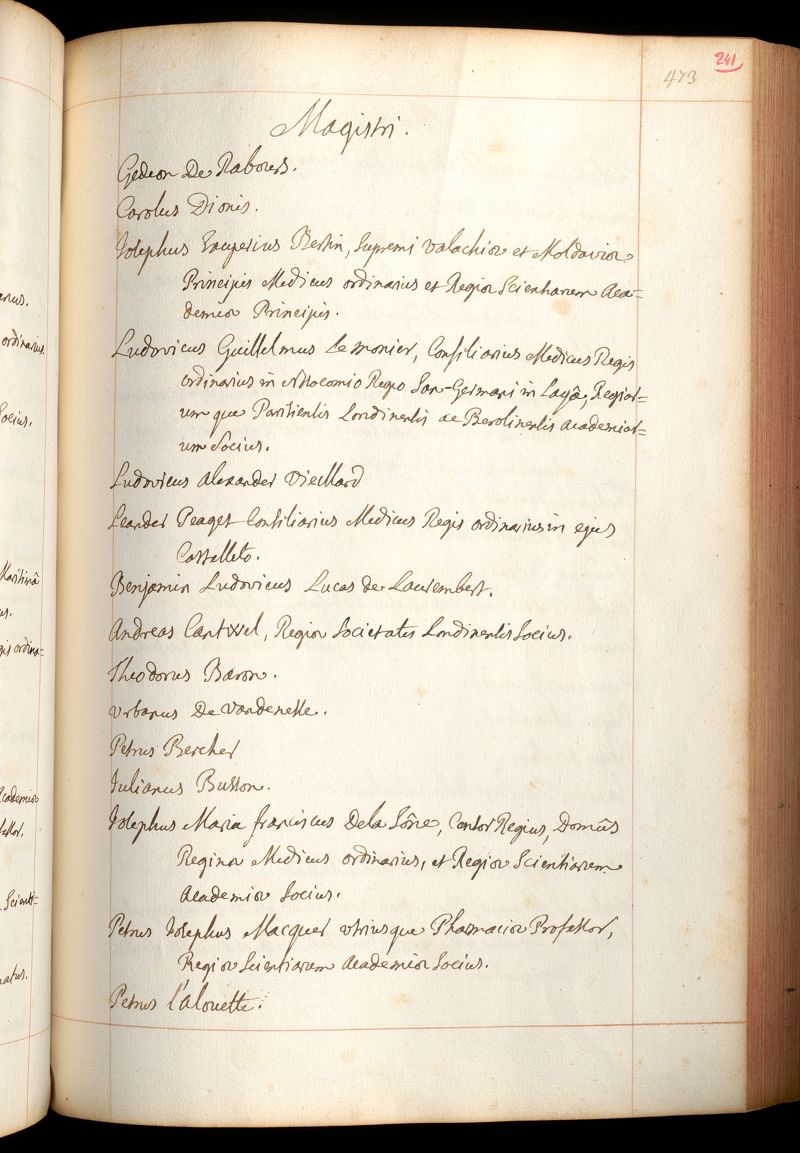 241
473
Magistri.
Gedeon De Rabours.
Carolus Dionis.
Josephus Exuperius Bertin, supremi valachiæ et Moldaviæ
Principis Medicus ordinarius et Regiæ Scientiarum Aca=
demiæ Principis.
Ludovicus Guillelmus Le monier, Consiliarius Medicus Regis
ordinarius in Nosocomio Regio San-Germani in Layâ, Regiar=
um que Parisiensis Londinensis ac Berolinensis academiar=
um Socius.
Ludovicus alexander vieillard
Leander Peaget Consiliarius Medicus Regis ordinarius in ejus
Castelleto.
Benjamin Ludovicus Lucas de Laurembert.
Andreas Cantwel, Regiæ Societatis Londinensis Socius.
Theodorus Baron.
urbanus De vandenesse.
Petrus Bercher
Julianus Busson.
Josephus Maria franciscus Dela Sône, Cantor Regius,
Reginæ Medicus ordinarius, et Regiæ Scientiarum
Academiæ Socius.
Petrus Josephus Macquer utriusque Pharmaciæ Professor,
Regiæ Scientiarum Academiæ Socius.
Petrus l'alouette.
ordinarius.
Socius.
Maritimâ
us.
gis ordina=
Academiæ
Scienti=